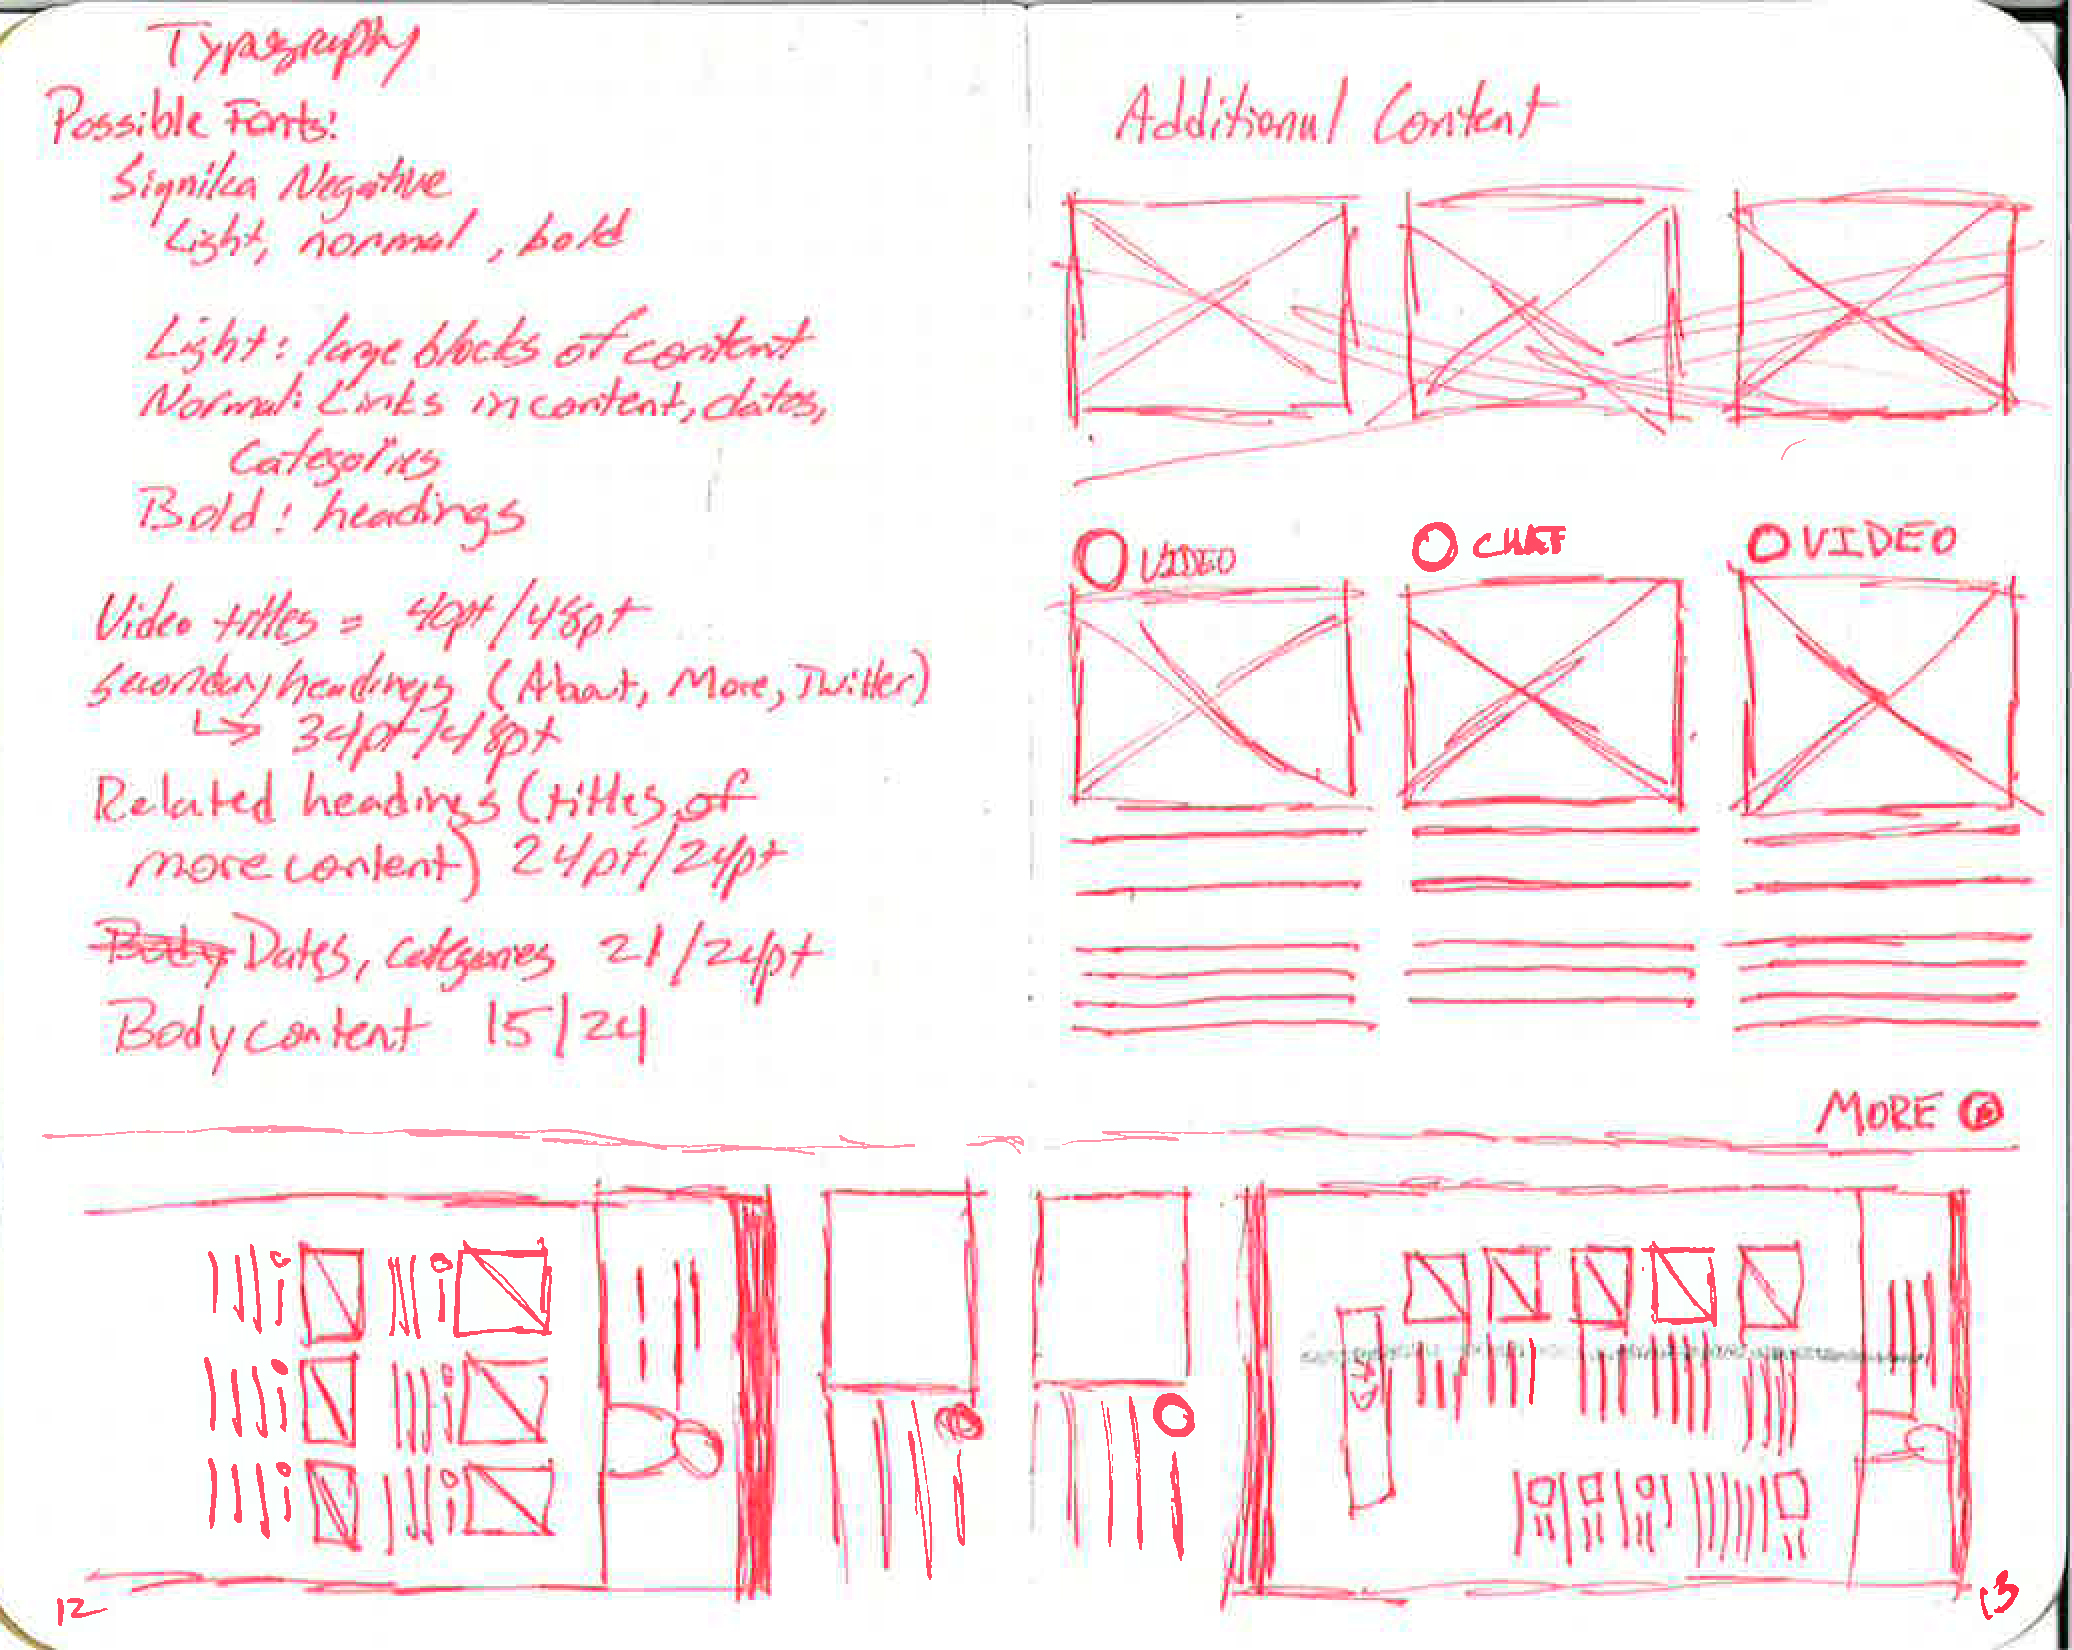 Typography
Possible Fonts:
Signika Negative
Light, normal, bold
Light: large blocks of content
Normal: Links in content, dates,
Categories
Bold: headings
Video titles = 40pt/48pt
Secondary headings (About, More, Twitter)
↳ 34pt/48pt
Related headings (titles of
more content) 24pt/24pt
Body Dates, categories 21/24pt
Body content 15/24
12
Additional Content
VIDEO
CHEF
VIDEO
MORE
13